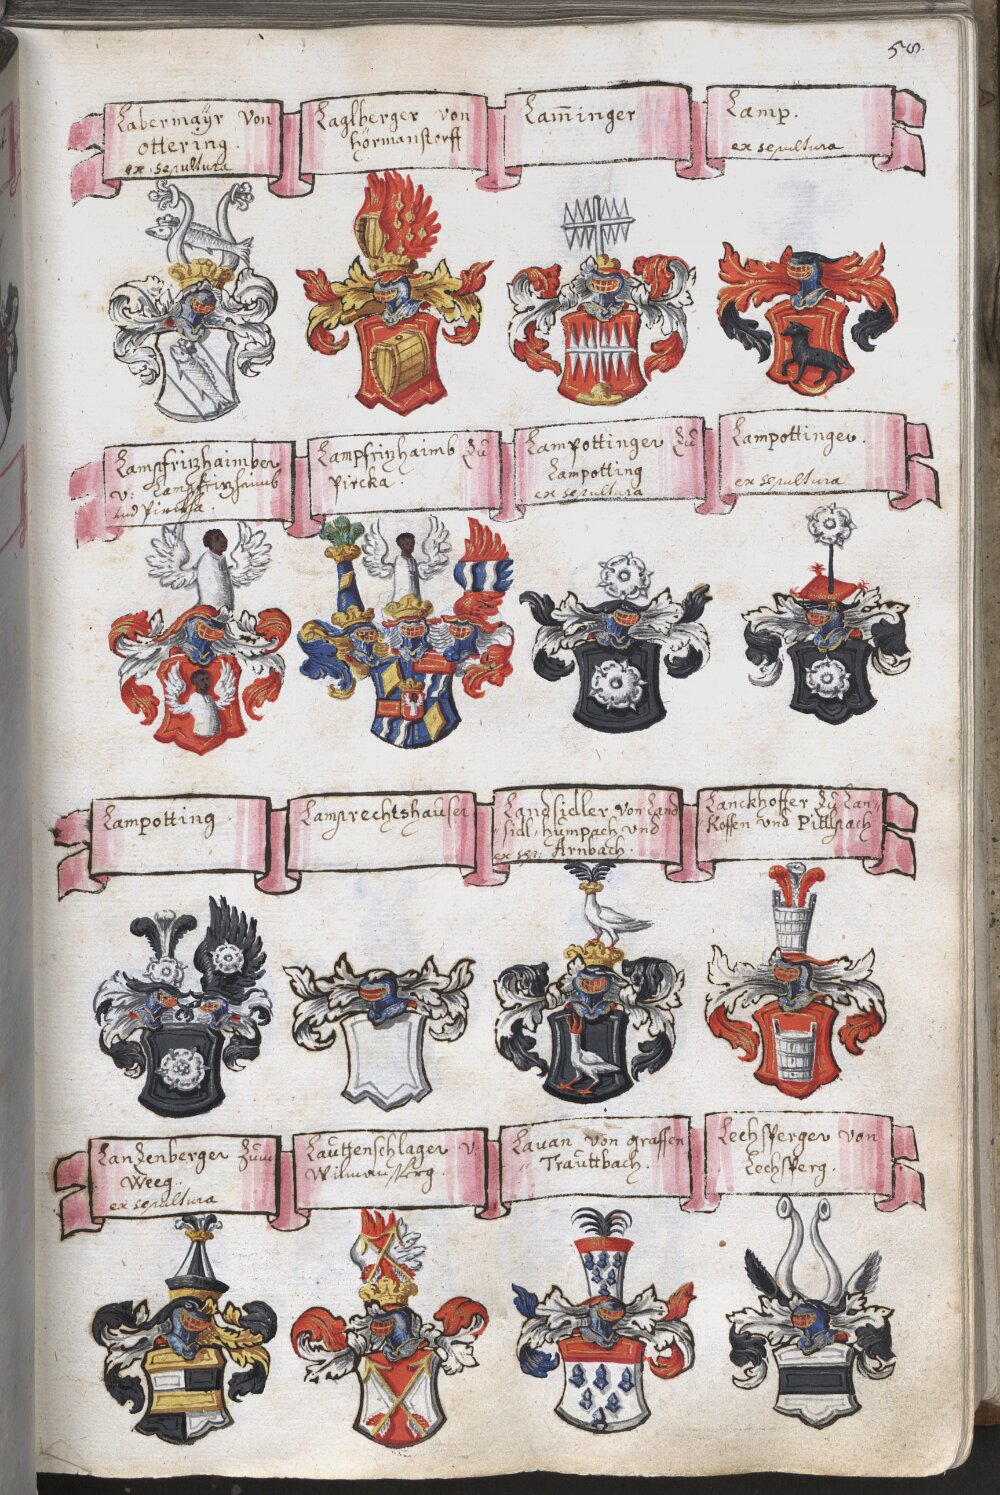 58.
Labermaÿr von
ottering.
ex sepultura
Laglberger von
Hörmanstorff
Lam̄inger
Lamp.
ex sepultura
Lampfrizhaimber
v: Lampfrizhaimb
und Pircka.
Lampfrizhaimb Zu
Pircka.
Lampottinger Zu
Lampotting
ex sepultura
Lampottinger.
ex sepultura
Lampotting
Lamprechtshauser
Landsidler von Land
sidl, Humpach und
ex sep: Arnbach.
Lanckhoffer Zu Lan-
Koffen und Pittlpach
Lanzenberger Zum
Weeg.
ex sepultura
Lauttenschlager v.
Wilmansperg.
Lauan von graffen
Trauttbach.
Lechsperger von
Lechsperg.